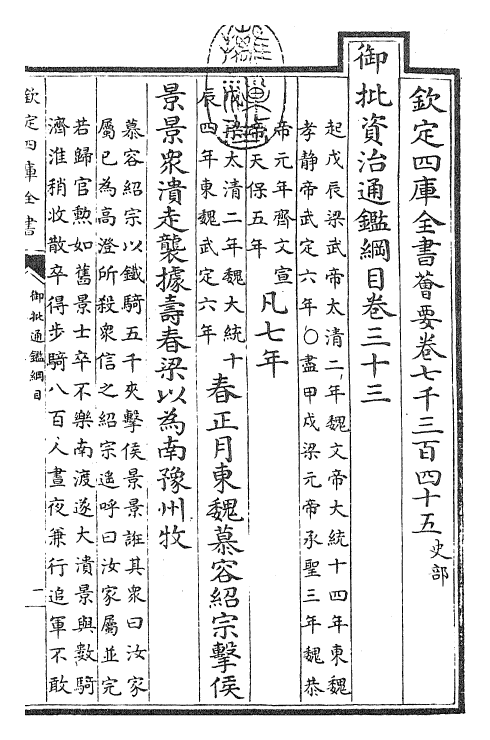 欽定四庫全書薈要卷七千三百四十五 史部
御批資治通鑑綱目卷三十三
起戊辰梁武帝太清二年魏文帝大統十四年東魏
孝靜帝武定六年○盡甲戌梁元帝承聖三年魏恭
帝元年齊文宣
帝天保五年
凡七年
戊辰
梁太清二年魏大統十
四年東魏武定六年
春正月東魏慕容紹宗擊侯
景景衆潰走襲據壽春梁以為南豫州牧
慕容紹宗以鐵騎五千夾擊侯景景誑其衆曰汝家
屬已為高澄所殺衆信之紹宗遙呼曰汝家屬並完
若歸官勲如舊景士卒不樂南渡遂大潰景與數騎
濟淮稍收散卒得步騎八百人晝夜兼行追軍不敢
欽定四庫全書
御批通鑑綱目